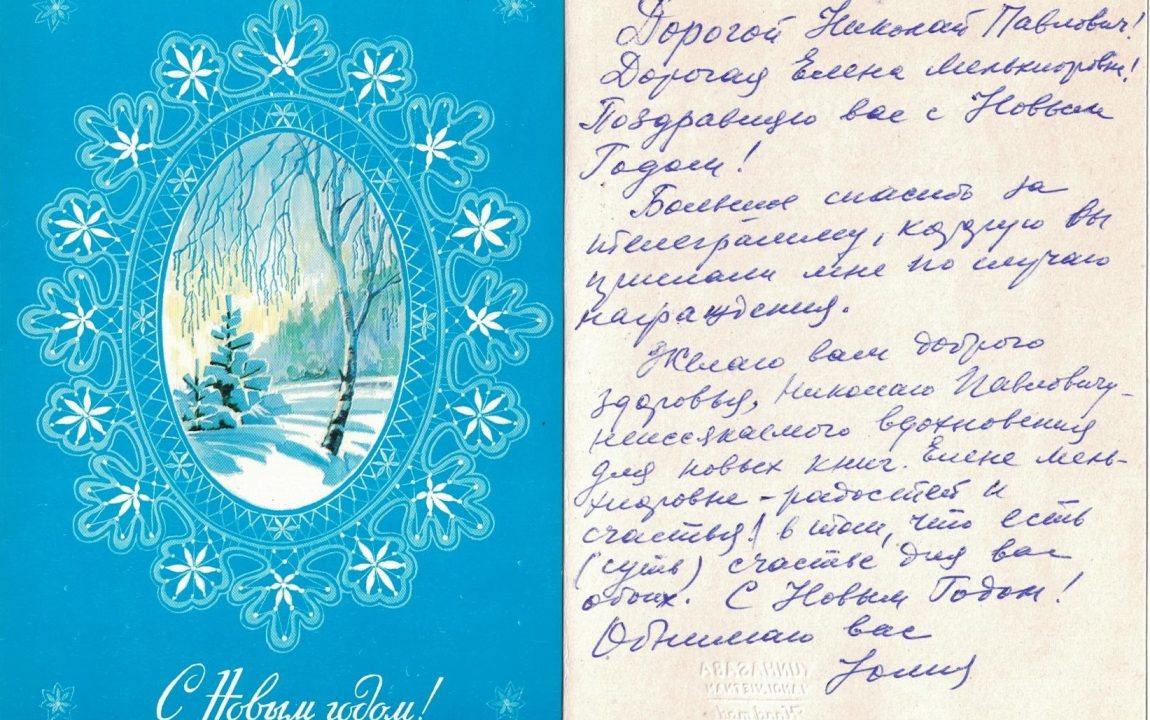 С Новым годом!
Дорогой Николай Павлович!
Дорогая Елена Мельхиоровна!
Поздравляю вас с Новым
Годом!
Большое спасибо за
телеграмму, которую вы
прислали мне по случаю
награждения.
Желаю вам доброго
здоровья, Николаю Павловичу –
неиссякаемого вдохновения
для новых книг. Елене Мель-
хиоровне – радостей и
счастья! в том, что есть
(суть) счастье для вас
обоих. С Новым Годом!
Обнимаю вас
Юлия